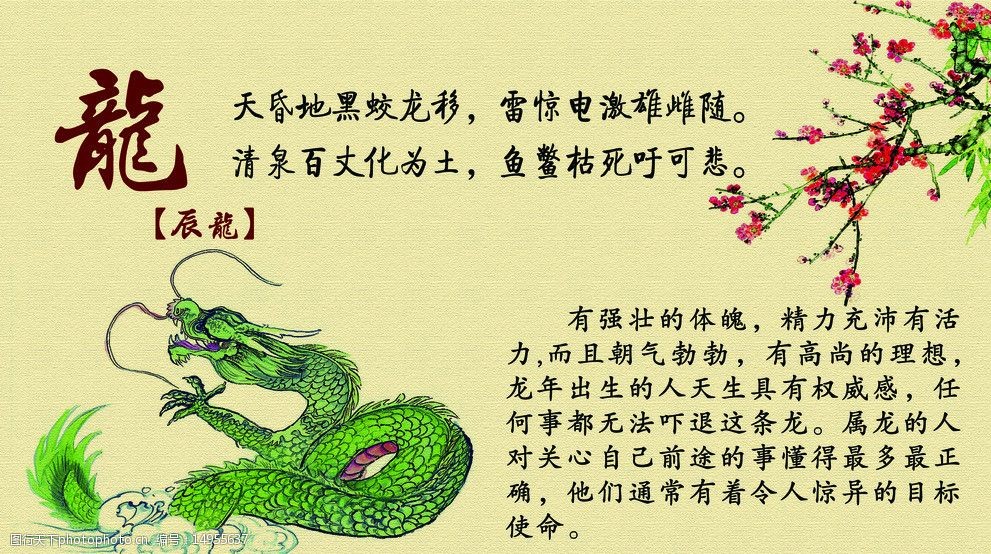 龍
天昏地黑蛟龙移，雷惊电激雄雌随。
清泉百丈化为土，鱼鳖枯死吁可悲。
【辰龍】
有强壮的体魄，精力充沛有活
力,而且朝气勃勃，有高尚的理想，
龙年出生的人天生具有权威感，任
何事都无法吓退这条龙。属龙的人
对关心自己前途的事懂得最多最正
确，他们通常有着令人惊异的目标
使命。
图行天下photophoto.cn 编号：14955637